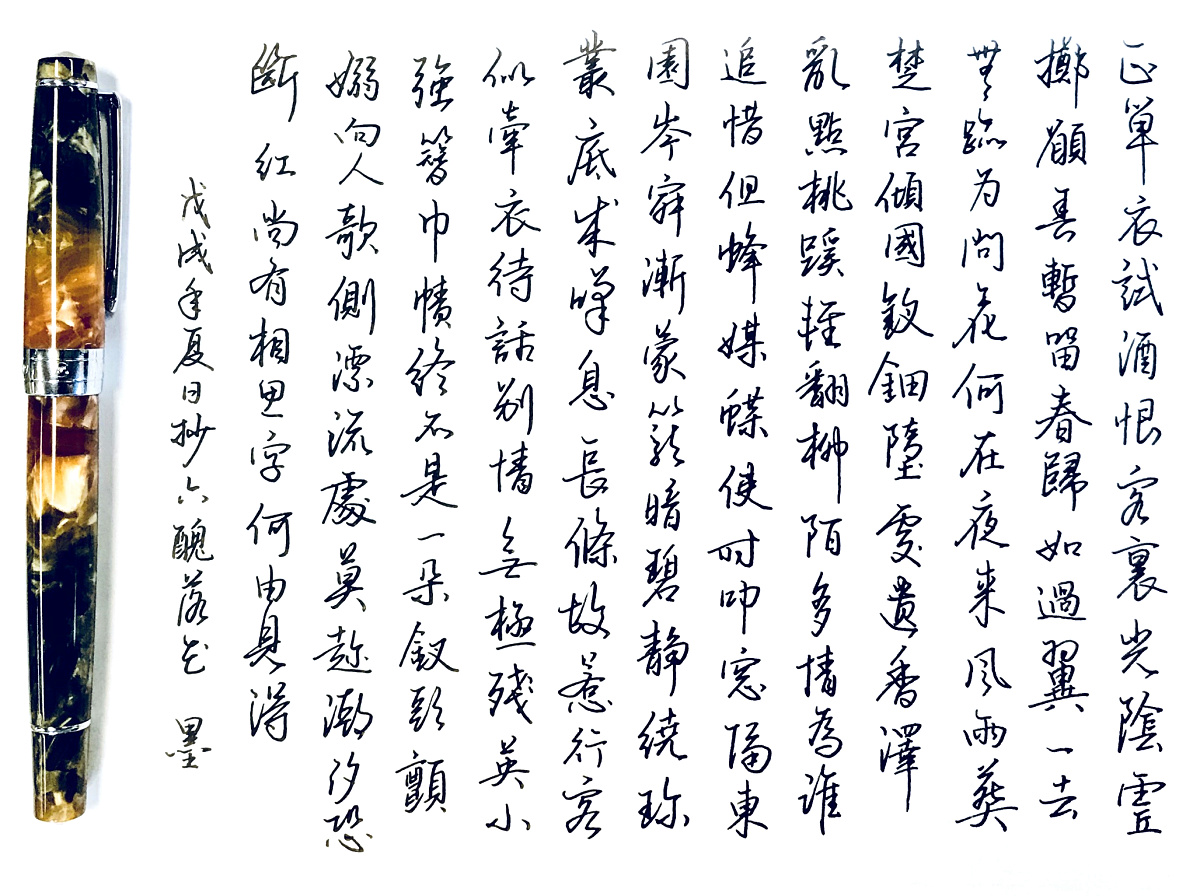 正單衣試酒恨客裏光陰虛
擲願春暫留春歸如過翼一去
無跡为問花何在夜来風雨葬
楚宮傾國釵鈿墮處遺香澤
亂點桃蹊輕翻柳陌多情為誰
追惜但蜂媒蝶使时叩窓隔東
園岑寂漸蒙籠暗碧静繞珍
叢底成嘆息長條故惹行客
似牽衣待話别情無極殘英小
強簪巾幘終不是一朵釵頭顫
嫋向人欹側漂流處莫趁潮汐恐
斷红尚有相思字何由見得
戊戌年夏日抄六醜落花 墨